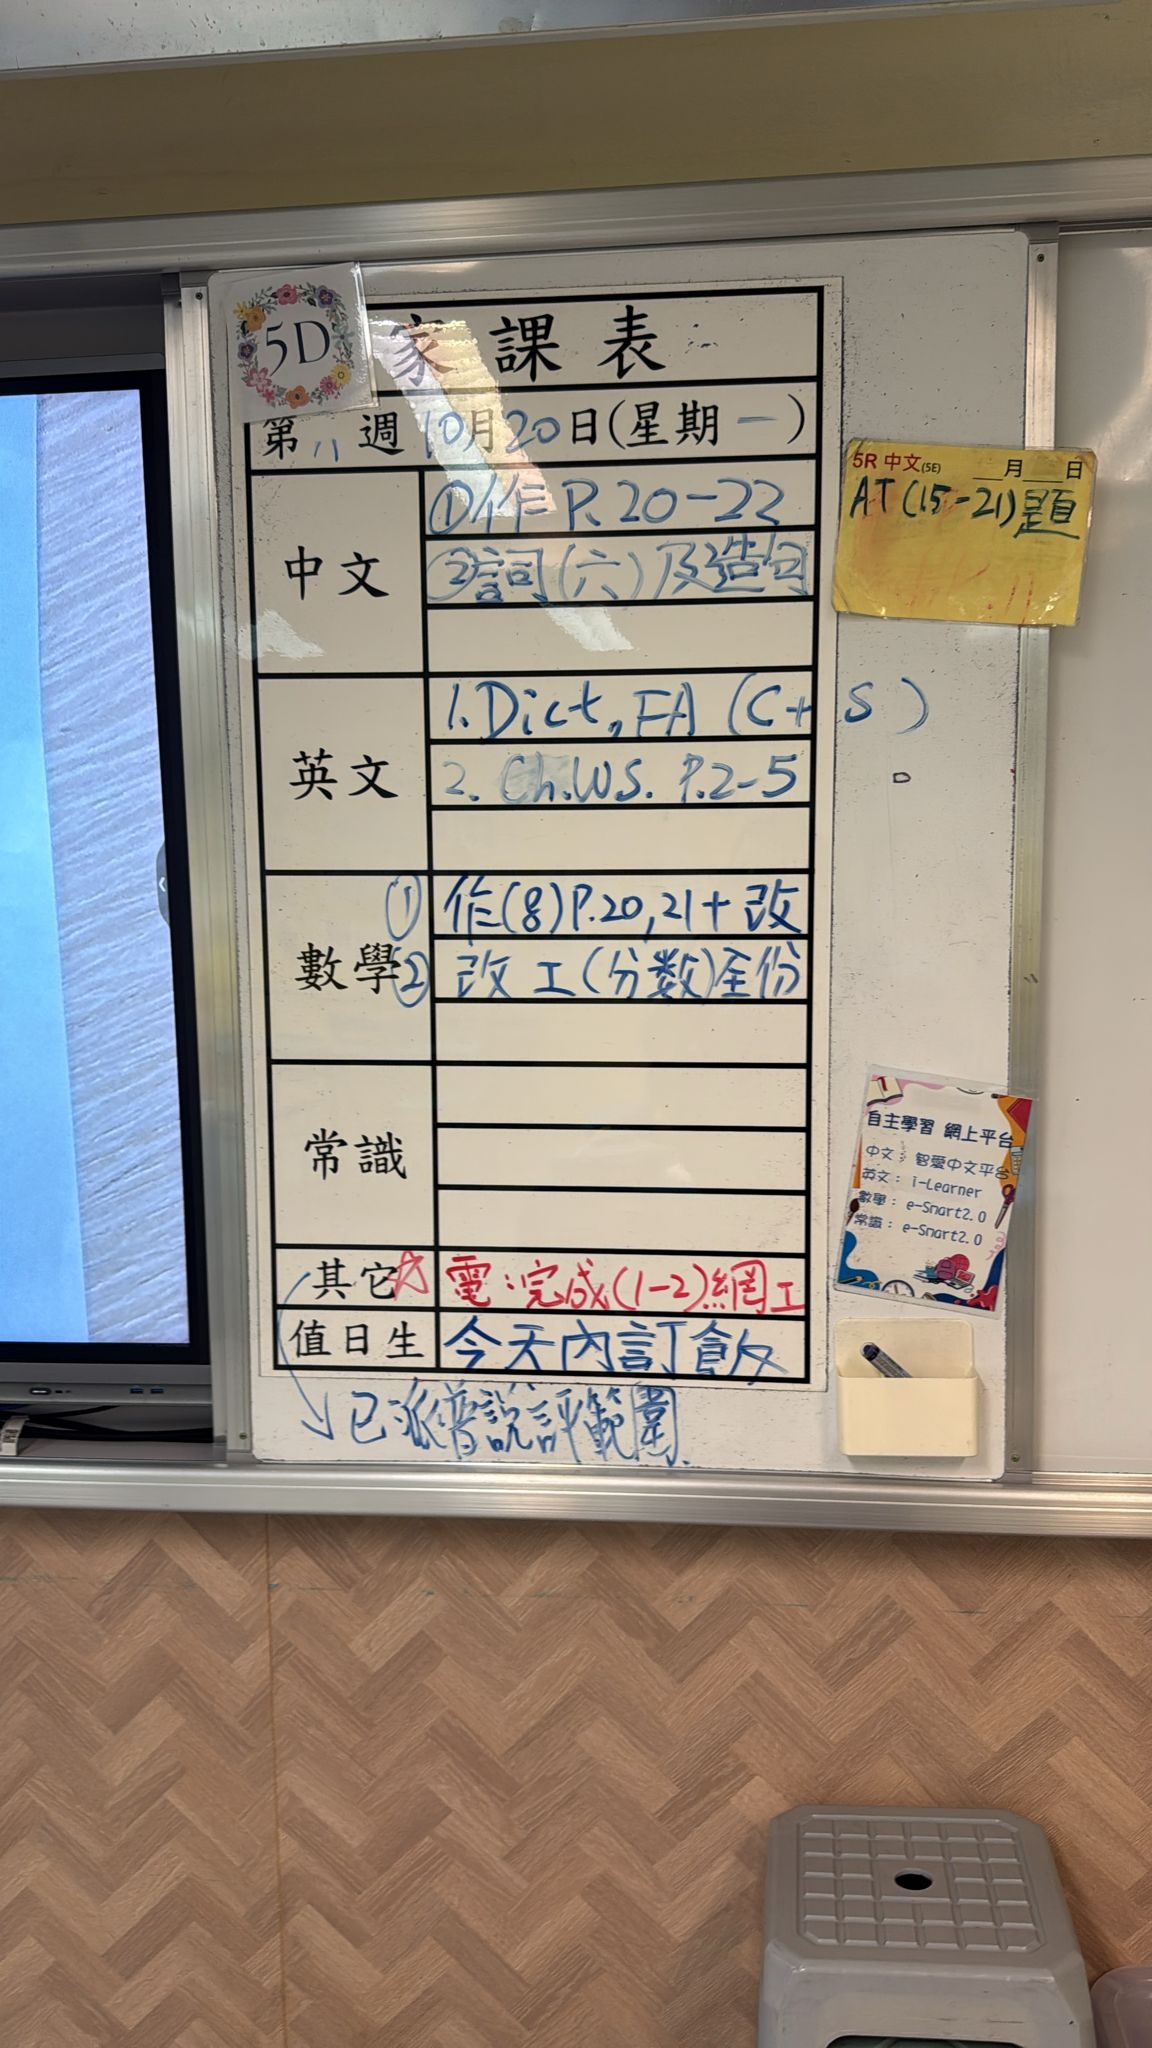 5D
家課表
第八週 10月20日(星期一)
中文
①作 P. 20-22
②詞(六)及造句
英文
1. Dict, FA (C+S)
2. Ch.WS. P.2-5
數學
① 作(8)P.20,21+改
② 改工(分数)全份
常識
其它☆ 電:完成(1-2)網工
值日生 今天內訂飯
↓已派普說評範圍
5R 中文(5E) __月__日
AT (15-21)題
自主學習 網上平台
中文: 智愛中文平台
英文: i-Learner
數學: e-Smart2.0
常識: e-Smart2.0